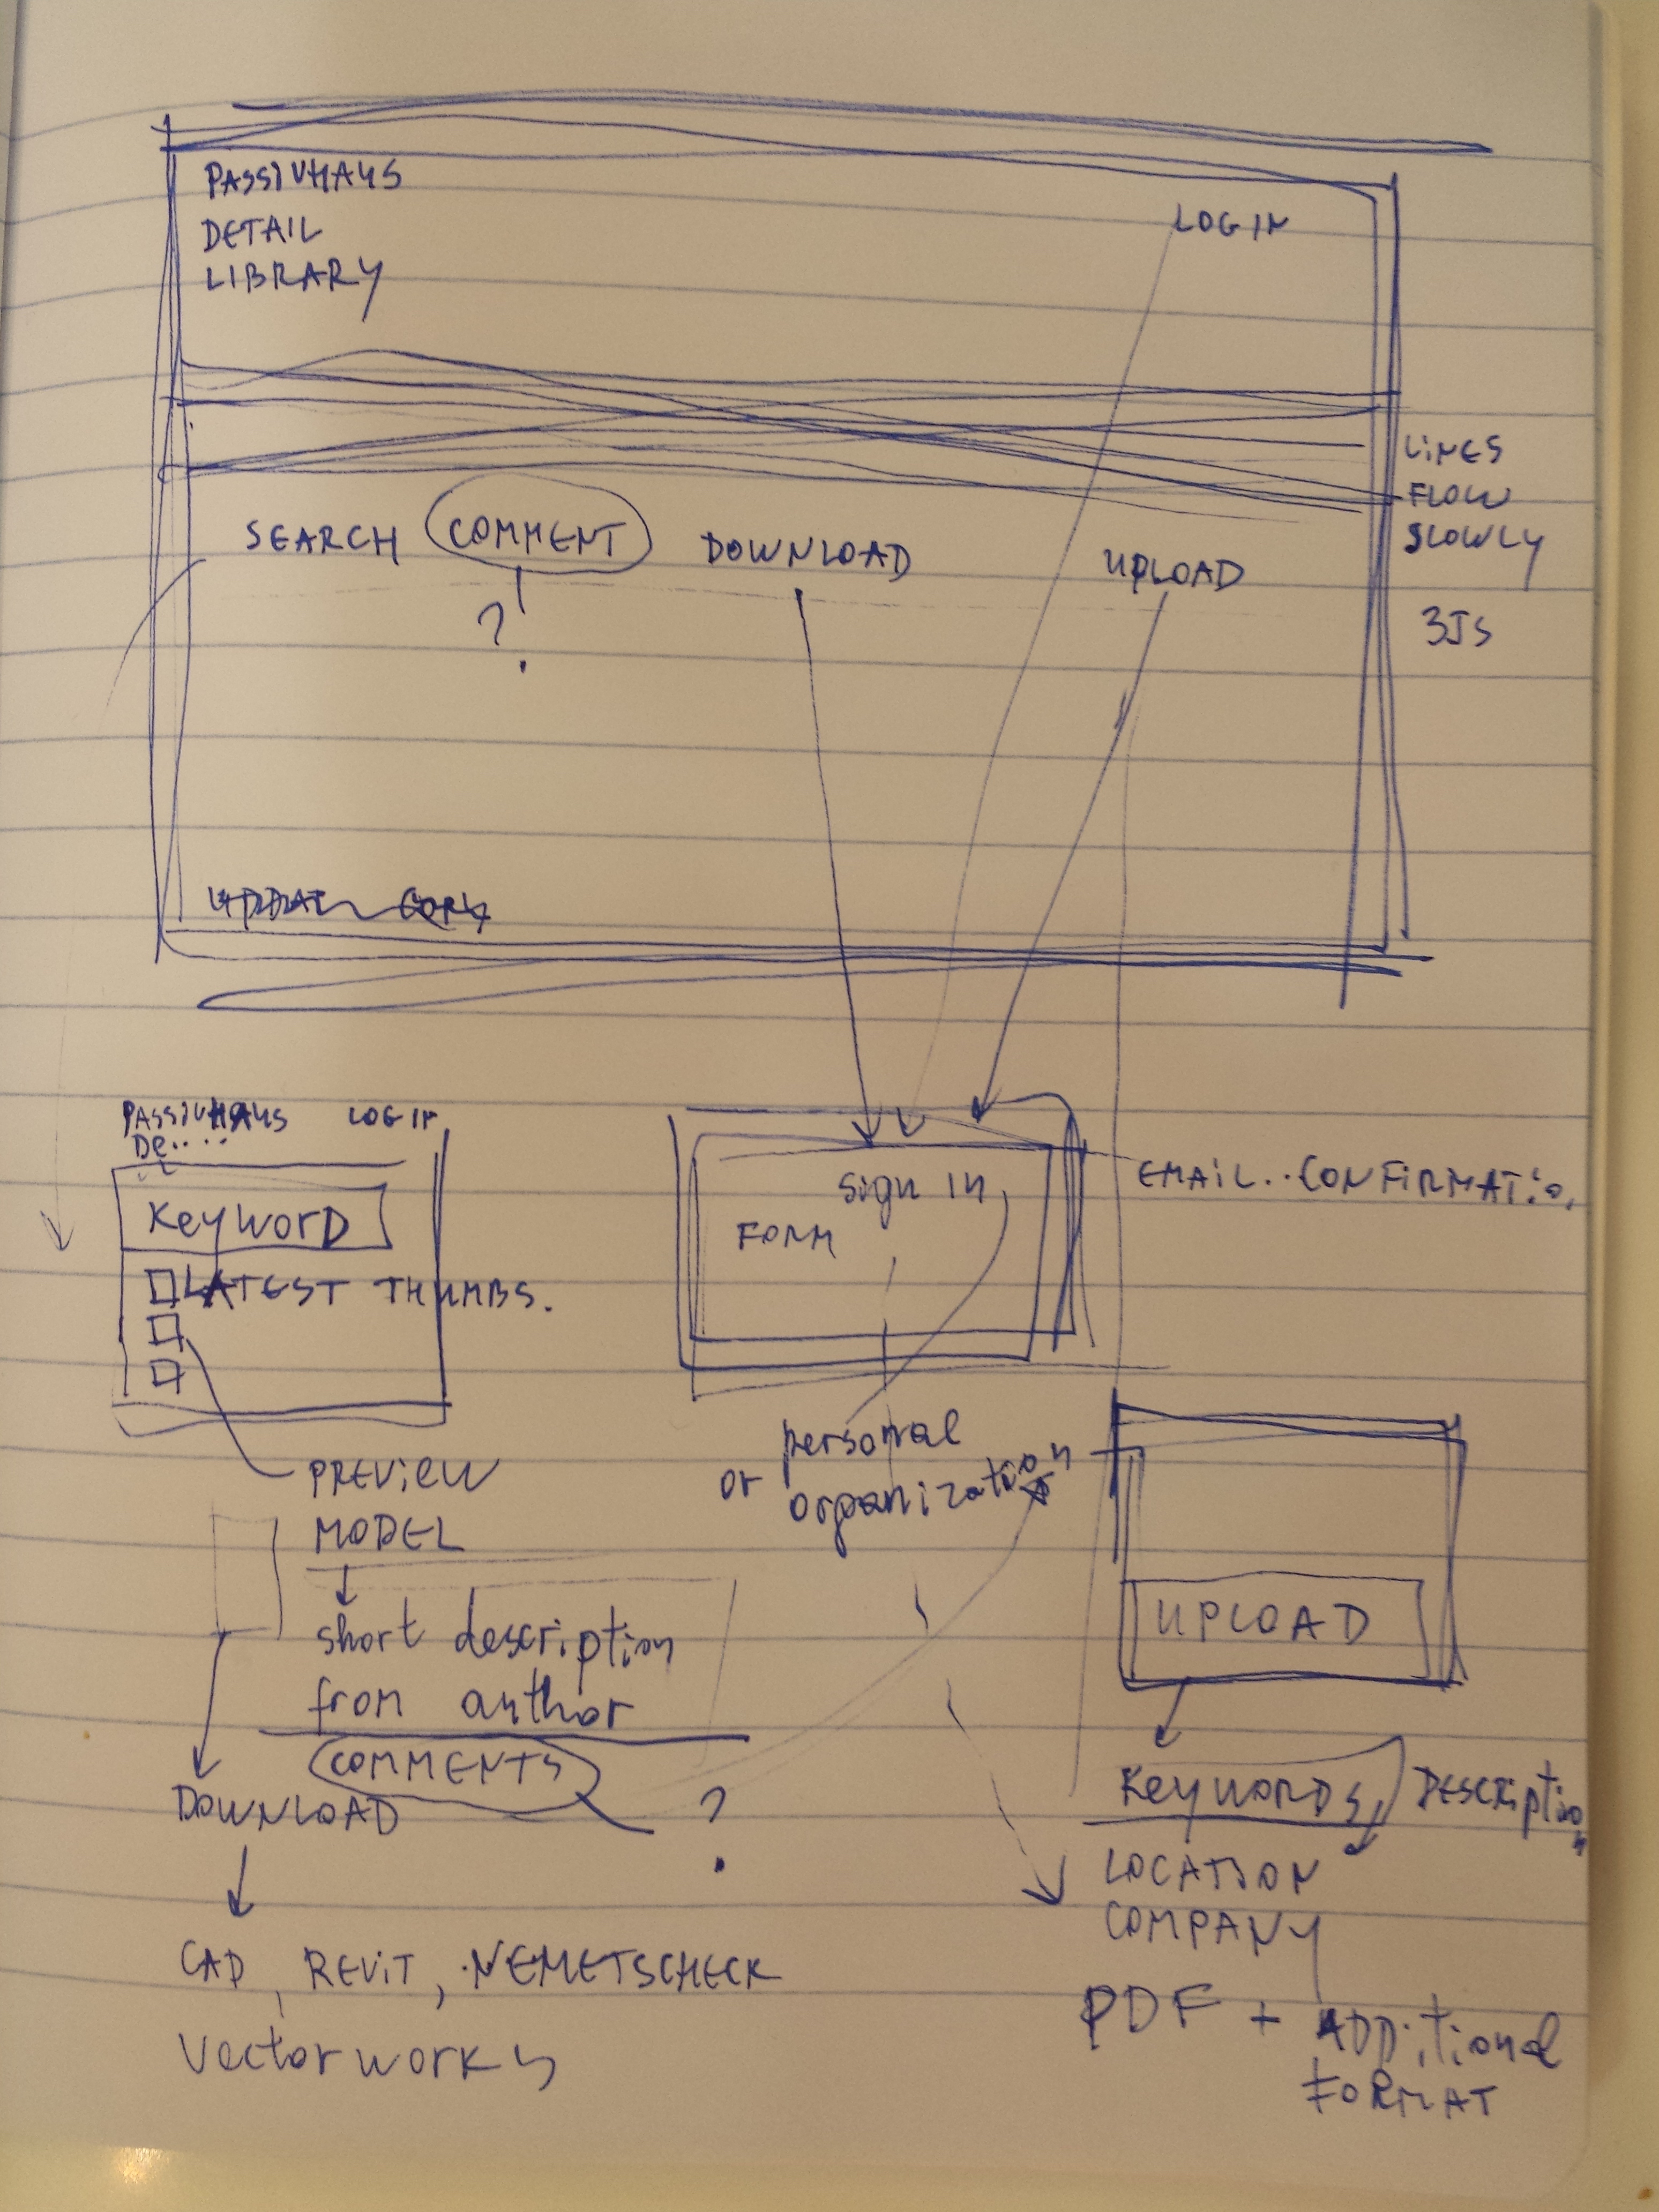 PASSIVHAUS
DETAIL
LIBRARY
LOG IN
LINES
FLOW
SLOWLY
3JS
SEARCH COMMENT DOWNLOAD UPLOAD
?
PASSIVHAUS LOG IN
DE....
KEYWORD
LATEST THUMBS.
PREVIEW
MODEL
short description
from author
COMMENTS
?
DOWNLOAD
CAD, REVIT, NEMETSCHECK
Vectorworks
sign in
FORM
EMAIL..CONFIRMATIO.
personal
or organization
UPLOAD
KEYWORDS, DESCRIPTION
LOCATION
COMPANY
PDF + ADDITIONAL
FORMAT